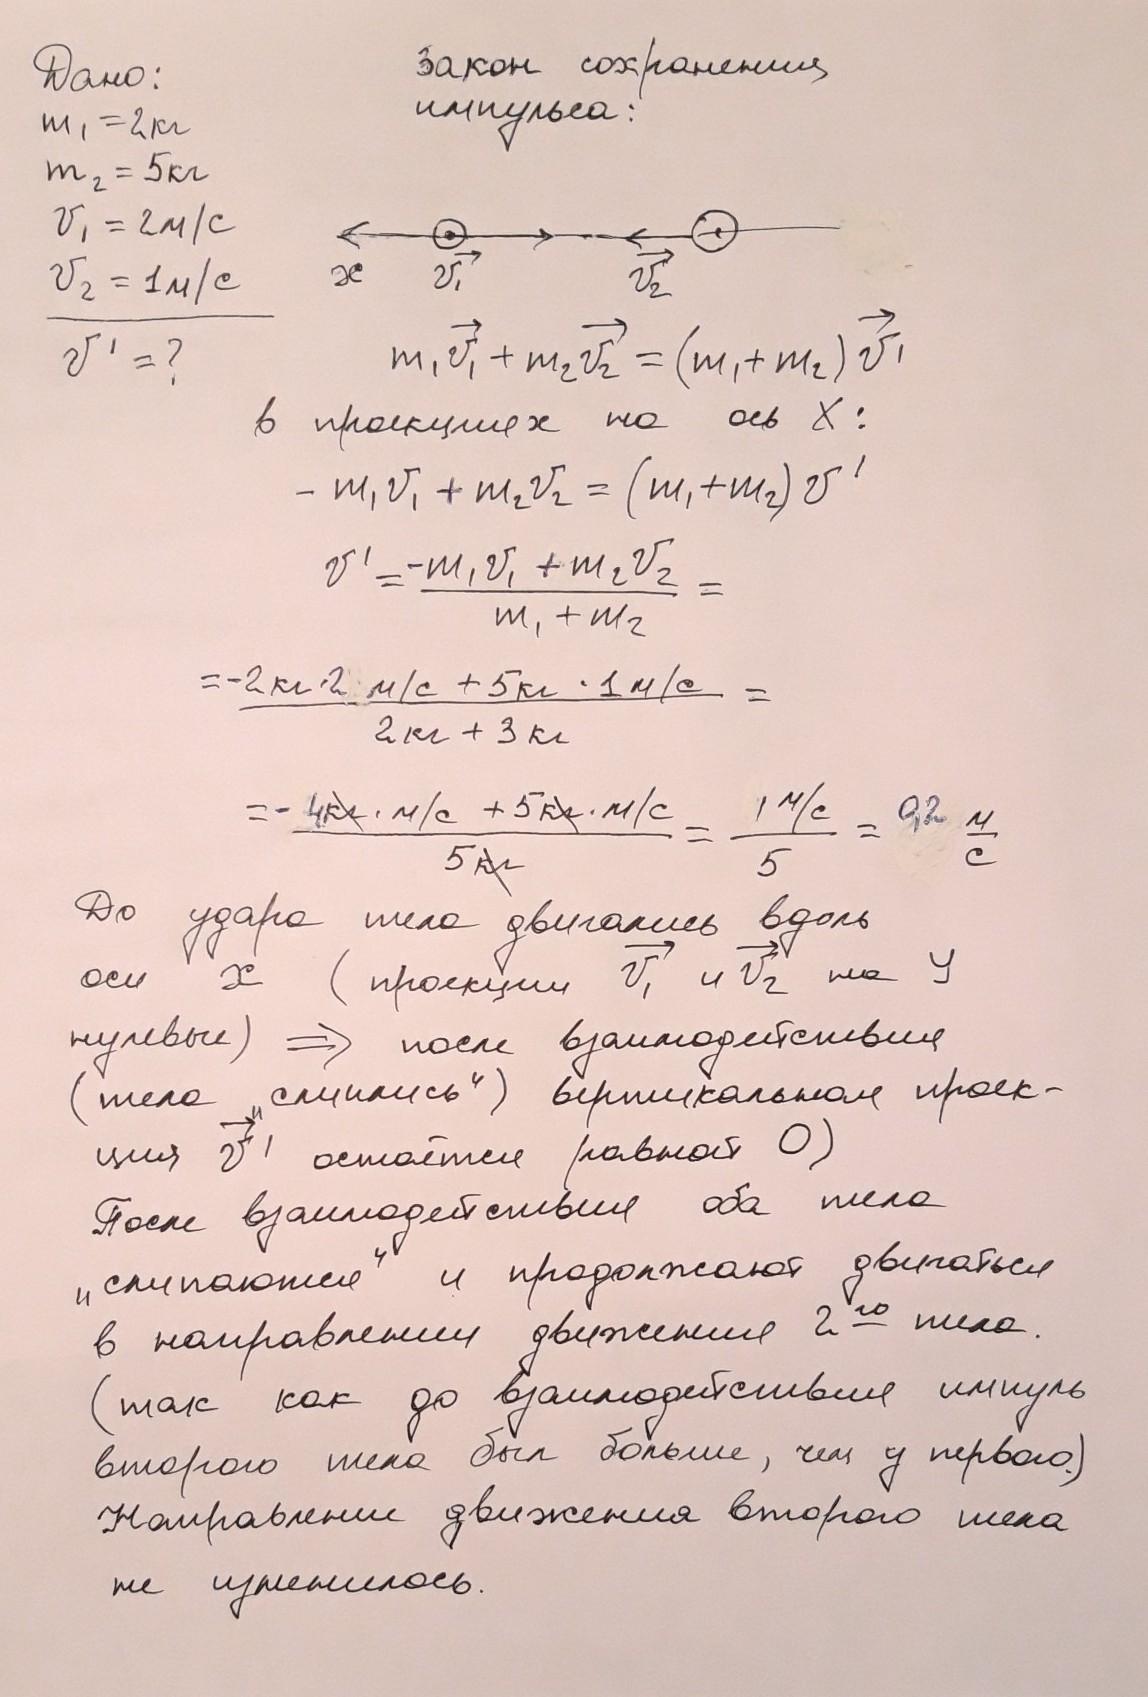 Дано:
m₁ = 2кг
m₂ = 5кг
v₁ = 2м/с
v₂ = 1м/с
v' = ?
Закон сохранения
импульса:
x v₁ v₂
m₁v₁ + m₂v₂ = (m₁+m₂) v'
в проекциях на ось X:
- m₁v₁ + m₂v₂ = (m₁+m₂) v'
v' = -m₁v₁ + m₂v₂ / m₁ + m₂ =
= -2кг·2 м/с + 5кг · 1м/с / 2кг + 3кг =
= -4кг·м/с + 5кг·м/с / 5кг = 1 м/с / 5 = 0,2 м/с
До удара тела двигались вдоль
оси x (проекции v₁ и v₂ на y
нулевые) ⇒ после взаимодействия
(тела „слиплись“) вертикальная проек-
ция v' остаётся равной 0)
После взаимодействия оба тела
„слипаются“ и продолжают двигаться
в направлении движения 2го тела.
(так как до взаимодействия импуль
второго тела был больше, чем у первого.)
Направление движения второго тела
не изменилось.